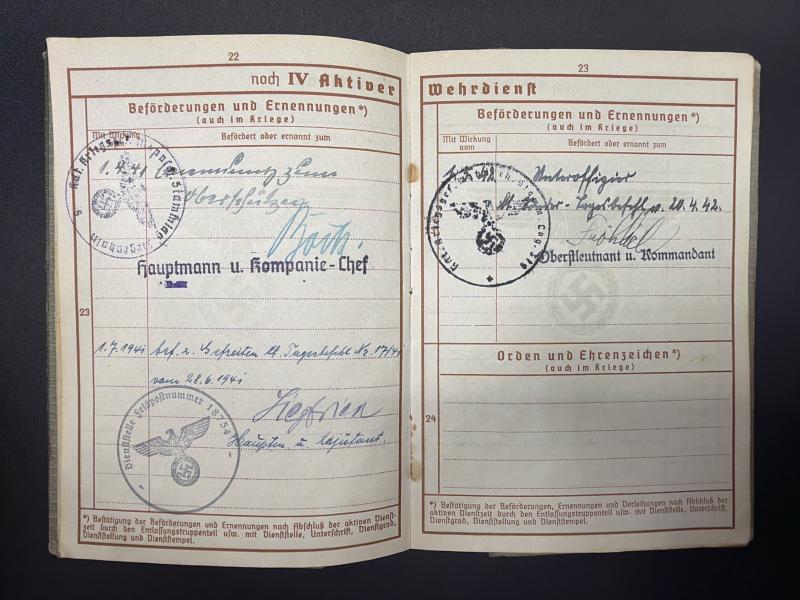 22
noch IV Aktiver
Beförderungen und Ernennungen*)
(auch im Kriege)
Mit Wirkung
Befördert oder ernannt zum
1. 4. 41 Ernennung zum
Oberschützen
Hauptmann u. Kompanie-Chef
23
1.7.1941 bef. z. Gefreiten lt. Tagesbefehl Nr. 17/41
vom 28.6.1941
Dienststelle Feldpostnummer 18754
Hauptm u. Adjutant.
*) Bestätigung der Beförderungen und Ernennungen nach Abschluß der aktiven Dienst-
zeit durch den Entlassungstruppenteil usw. mit Dienststelle, Unterschrift, Dienstgrad,
Dienststellung und Dienststempel.
23
Wehrdienst
Beförderungen und Ernennungen*)
(auch im Kriege)
Mit Wirkung
vom
Befördert oder ernannt zum
42 Unteroffizier
lt. Tagesbefehl v. 20.4.42.
Oberstleutnant u. Kommandant
Orden und Ehrenzeichen*)
(auch im Kriege)
24
*) Bestätigung der Beförderungen, Ernennungen und Verleihungen nach Abschluß der
aktiven Dienstzeit durch den Entlassungstruppenteil usw. mit Dienststelle, Unterschrift,
Dienstgrad, Dienststellung und Dienststempel.